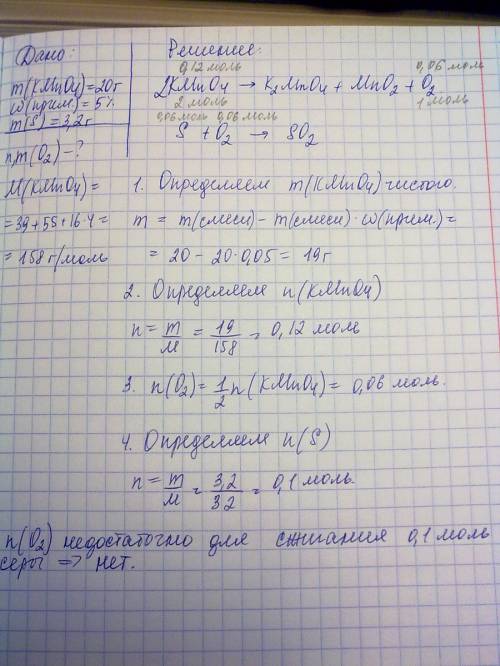 Дано:
m(KMnO4)=20г
ω(прим.)=5%
m(S)=3,2г
n,m(O2)-?
M(KMnO4)=
=39+55+16·4=
=158г/моль
Решение:
0,12 моль 0,06 моль
2KMnO4 → K2MnO4 + MnO2 + O2
2 моль 1 моль
0,06 моль 0,06 моль
S + O2 → SO2
1. Определяем m(KMnO4) чистого.
m = m(смеси) - m(смеси)·ω(прим.)=
= 20 - 20·0,05 = 19г
2. Определяем n(KMnO4)
n = m/M = 19/158 = 0,12 моль
3. n(O2) = 1/2 n(KMnO4) = 0,06 моль.
4. Определяем n(S)
n = m/M = 3,2/32 = 0,1 моль.
n(O2) недостаточно для сжигания 0,1 моль
серы => нет.